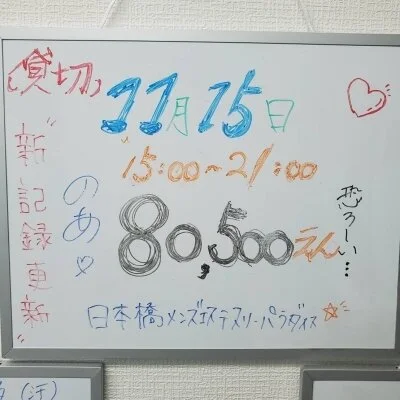 貸切
11月15日
15:00~21:00
のあ♡
80,500えん
恐ろしい…
"新記録更新"
日本橋メンズエステスリーパラダイス☆
(汗)